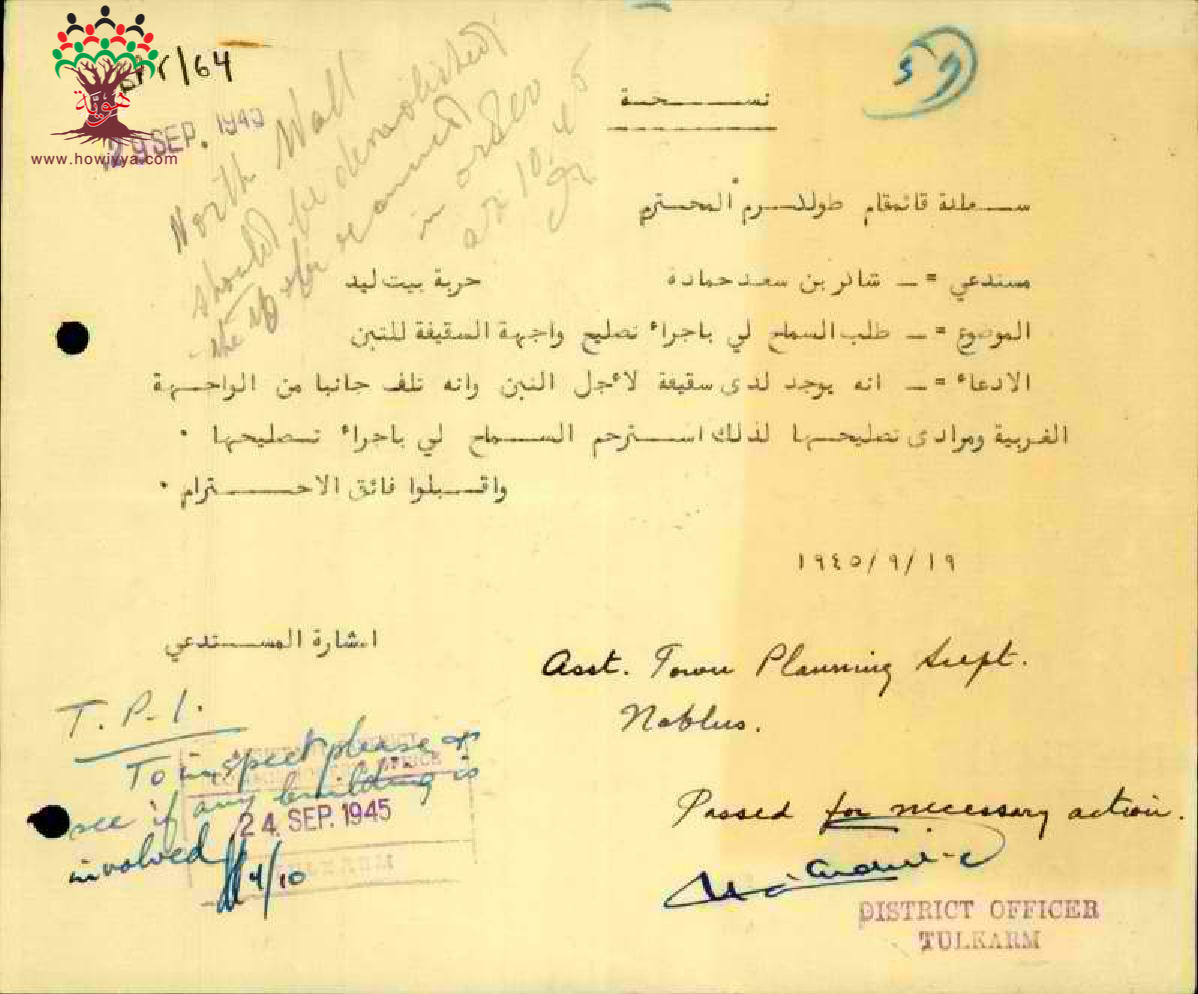 /64
29 SEP. 194
www.howiyya.com
North Wall
should be demolished
in order
نسخة
سعادة قائمقام طولكرم المحترم
مستدعي =ـ شاكر بن سعد حمادة خربة بيت ليد
الموضوع =ـ طلب السماح لي باجراء تصليح واجهة السقيفة للتبن
الادعاء =ـ انه يوجد لدى سقيفة لاجل التبن وانه تلف جانبا من الواجهة
الغربية ومرادى تصليحها لذلك استرحم السماح لي باجراء تصليحها ٠
واقبلوا فائق الاحترام ٠
١٩٤٥/٩/١٩
اشارة المستدعي
Asst. Town Planning
Nablus.
Passed for necessary action.
DISTRICT OFFICER
TULKARM
T. P. I.
To inspect please
see if any building is
involved
4/10
OFFICE
24 SEP. 1945
TULKARM